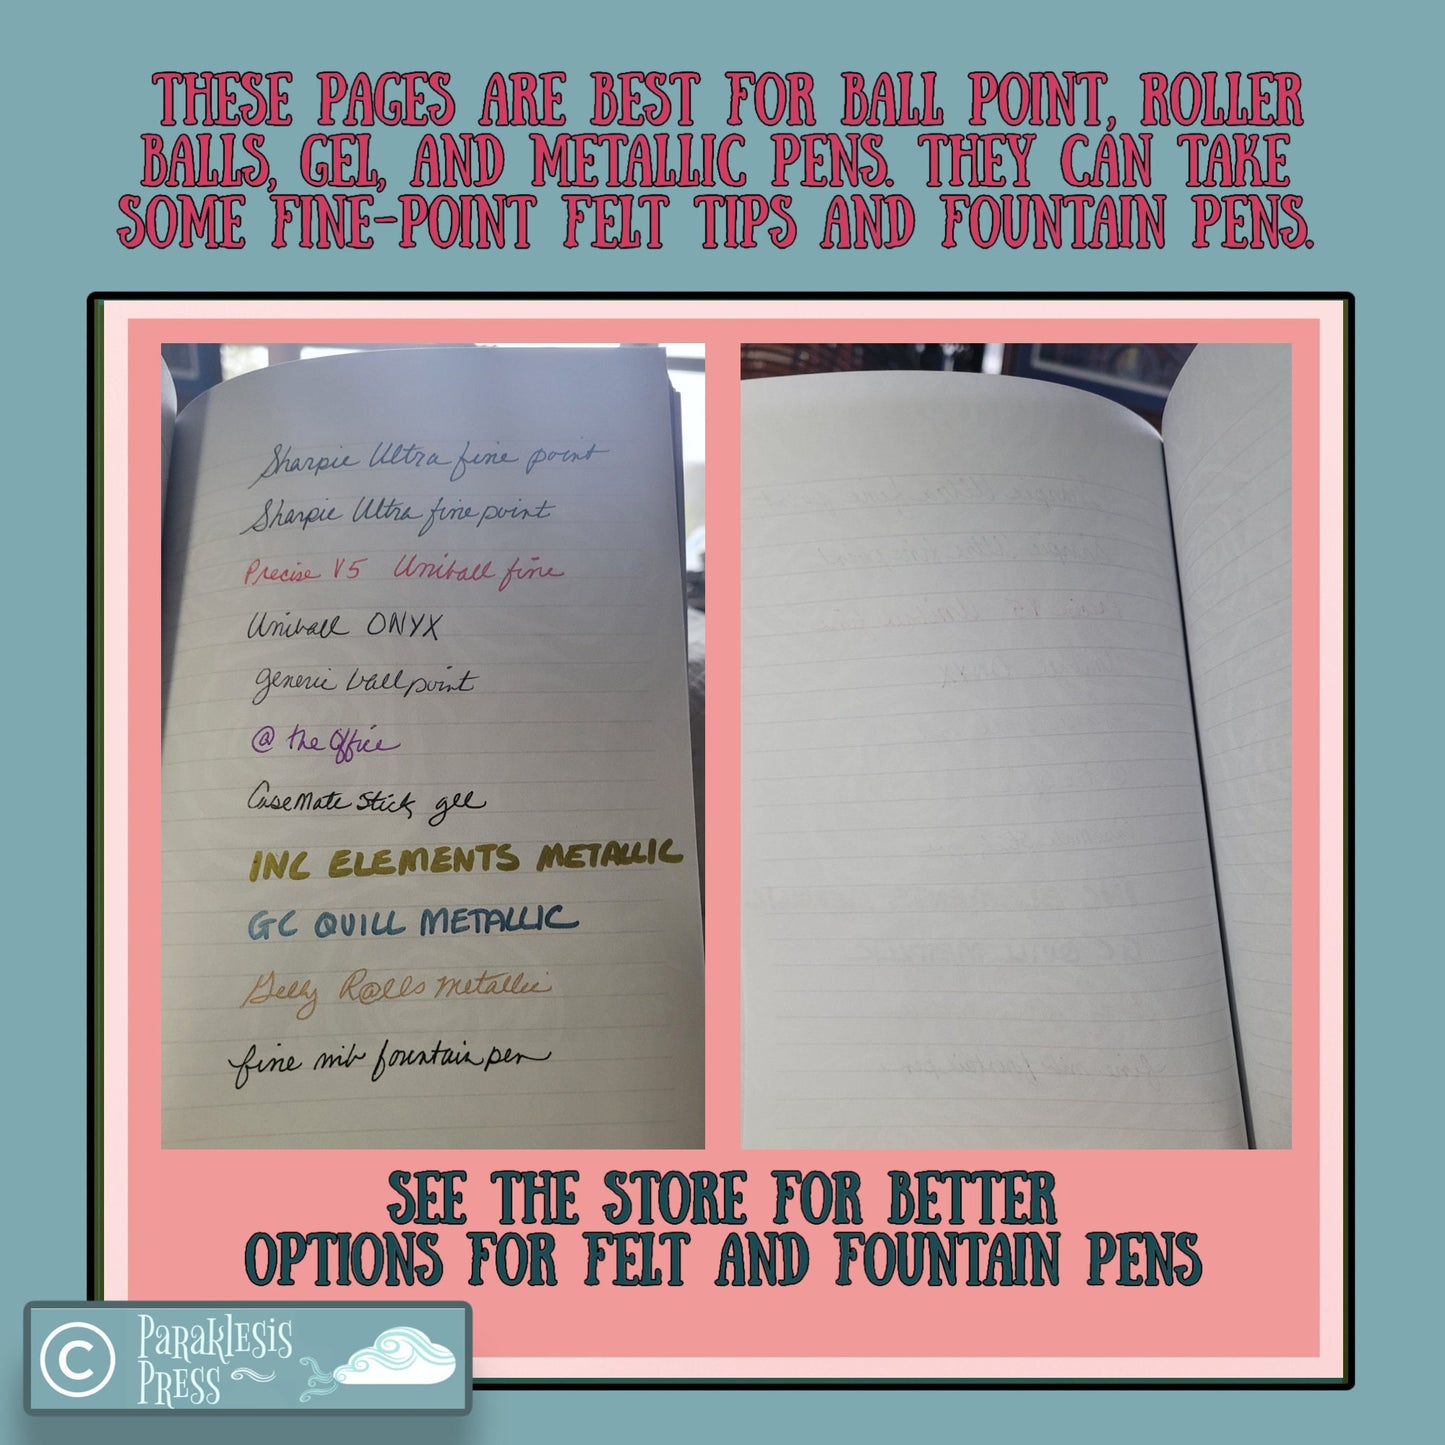 THESE PAGES ARE BEST FOR BALL POINT, ROLLER
BALLS, GEL, AND METALLIC PENS. THEY CAN TAKE
SOME FINE-POINT FELT TIPS AND FOUNTAIN PENS.
Sharpie Ultra fine point
Sharpie Ultra fine point
Precise V5 Uniball fine
Uniball ONYX
generic ball point
@ the Office
CaseMate Stick gel
INC ELEMENTS METALLIC
GC QUILL METALLIC
Gelly Rolls Metallic
fine nib fountain pen
SEE THE STORE FOR BETTER
OPTIONS FOR FELT AND FOUNTAIN PENS
© PARAKLESIS
PRESS